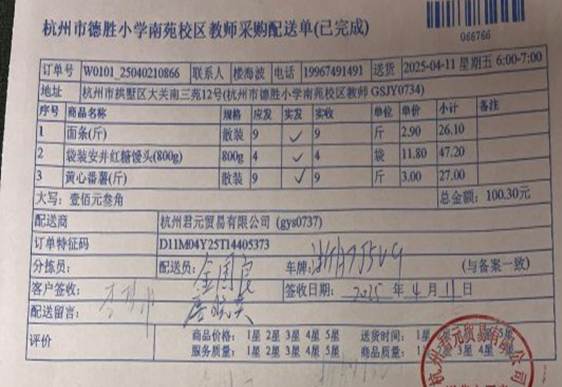 杭州市德胜小学南苑校区教师采购配送单(已完成)
066766
订单号 W0101_25040210866 联系人 楼海波 电话 19967491491 送货 2025-04-11 星期五 6:00-7:00
地址 杭州市拱墅区大关南三苑12号(杭州市德胜小学南苑校区教师 GSJY0734)
序号 商品名称 规格 应发 实发 实收 单位 单价 小计 备注
1 面条(斤) 散装 9 ✓ 9 斤 2.90 26.10
2 袋装安井红糖馒头(800g) 800g 4 ✓ 4 袋 11.80 47.20
3 黄心番薯(斤) 散装 9 ✓ 9 斤 3.00 27.00
大写: 壹佰元叁角 总金额: 100.30元
配送商 杭州君元贸易有限公司 (gys0737)
订单特征码 D11M04Y25T14405373
分拣员: 配送员: 金国良 车牌: (与备案一致)
客户签收: 签收日期: 2025 年 4 月 11 日
配送留言:
评价 商品价格: 1星 2星 3星 4星 5星 送货时间: 1星 5星
服务质量: 1星 2星 3星 4星 5星 商品质量:
杭州君元贸易有限公司